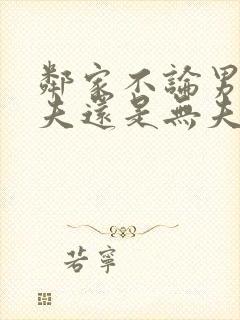 鄰家不論男
夫還是無夫
若寧